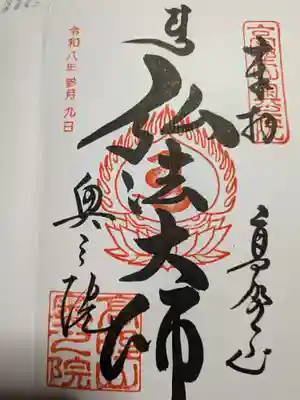 奉拝
高野山
弘法大師
奥之院
令和八年 参月 九日
高野山奥之院